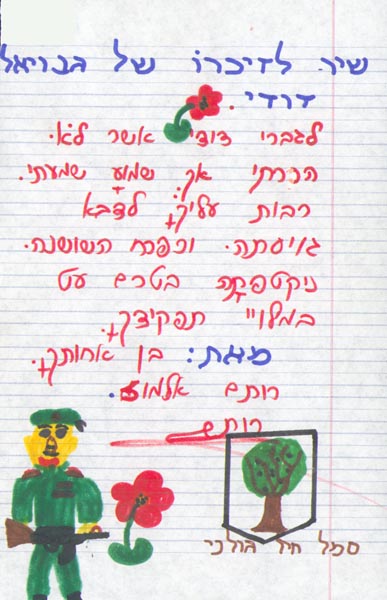 שיר לזיכרו של גבריאל
דודי.
לגברי דודי אשר לא.
הכרתי אך שמע שמעתי.
רבות עליך לצבא
גויסתה. וכפרח השושנה.
ניקטפתה בטרם עט
במלויי תפקידך.
מאת: בן אחותך.
רותם אלמוג.
רותם
סמל חיל גולני